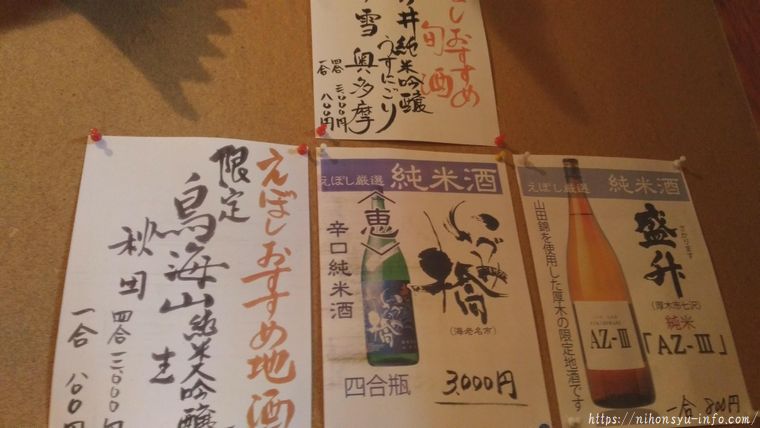 しおすすめ
旬酒
井純米吟醸
うすにごり
雪 奥多摩
四合 三、000円
一合 八00円
えぼしおすすめ地酒
限定
鳥海山純米大吟醸
生
秋田
四合 三、000円
一合 八00円
えぼし厳選 純米酒
恵
いづみ橋
いづみ橋
(海老名市)
辛口純米酒
四合瓶
3,000円
えぼし厳選 純米酒
盛升
さかります
(厚木市七沢)
純米
「AZ-Ⅲ」
AZ-Ⅲ
山田錦を使用した厚木の限定地酒です
一合 800円
https://nihonsyu-info.com/